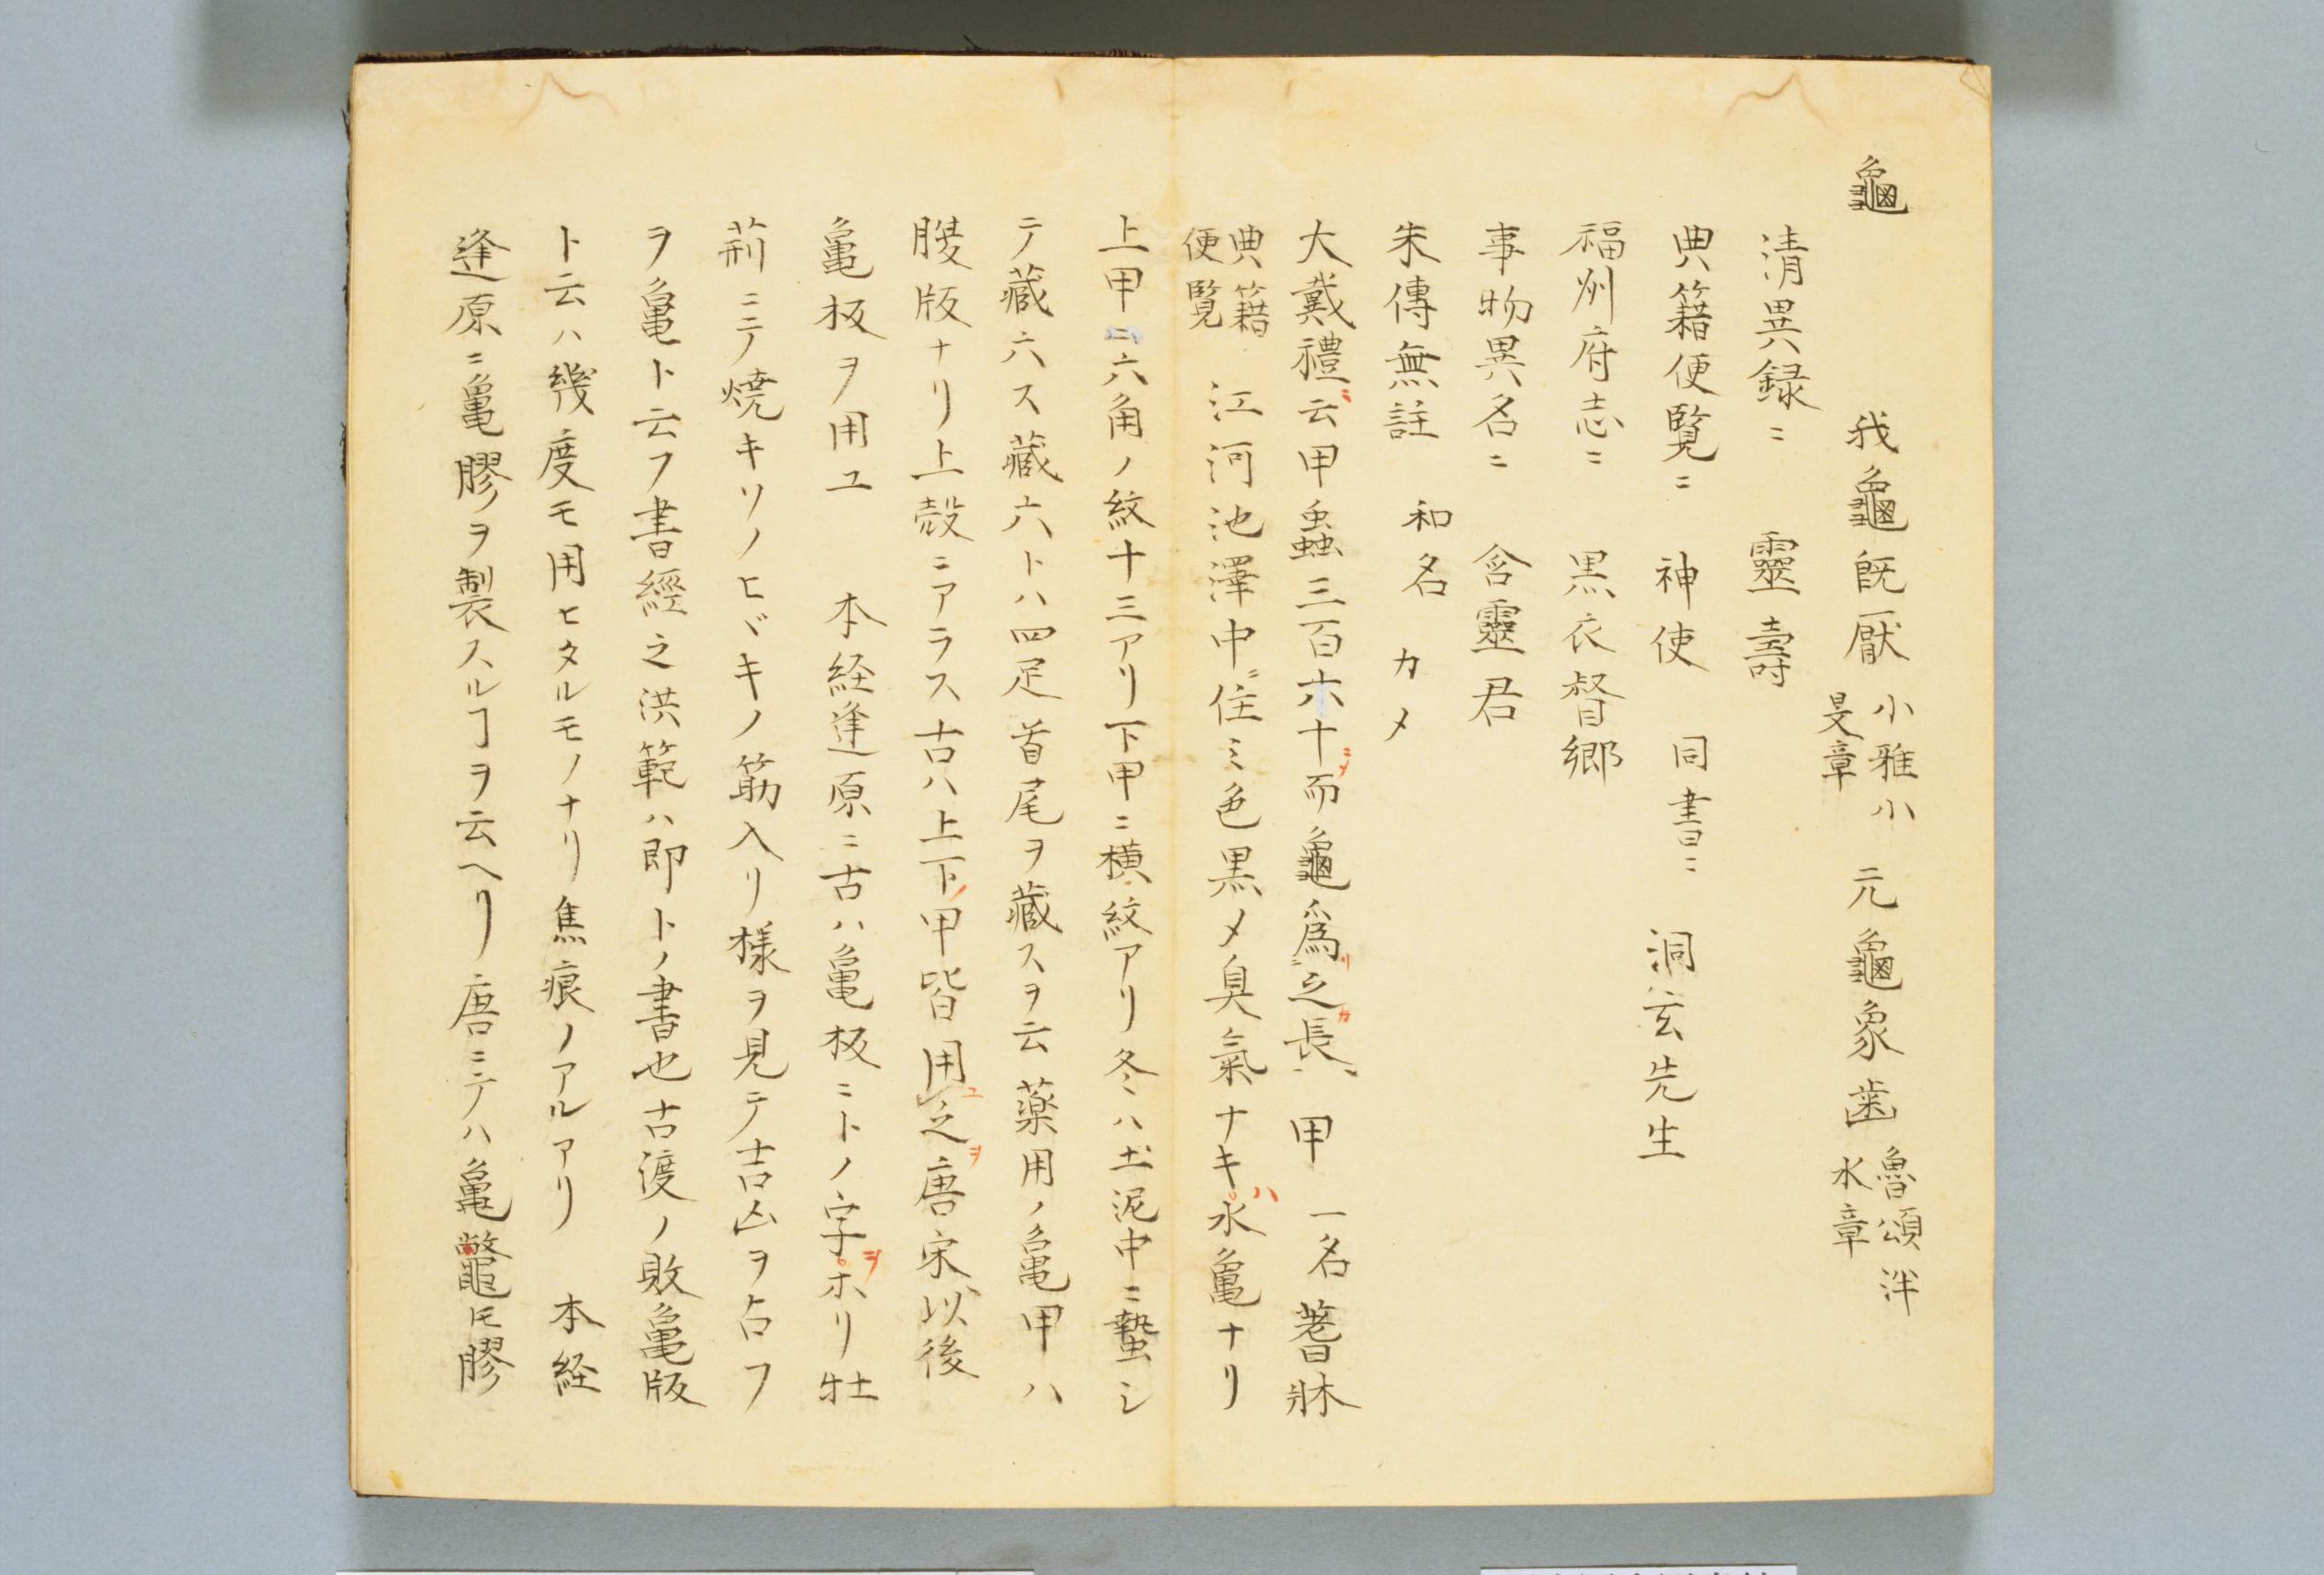 龜　我龜既厭 小雅小旻章　元龜象齒 魯頌泮水章
清異録ニ　靈壽
典籍便覧ニ　神使　同書ニ　洞玄先生
福州府志ニ　黒衣督郷
事物異名ニ　含靈君
朱傳無註　和名　カメ
大戴禮ニ云甲蟲三百六十而龜爲之長　甲　一名蓍牀
典籍便覧　江河池澤中ニ住ミ色黒メ臭氣ナキハ水亀ナリ
上甲ニ六角ノ紋十三アリ下甲ニ横紋アリ冬ハ土泥中ニ蟄シ
テ藏六ス藏六トハ四足首尾ヲ藏スヲ云薬用ノ亀甲ハ
腹版ナリ上殻ニアラス古ハ上下ノ甲皆用ユ之ヲ唐宋以後
亀板ヲ用ユ　本経逢原ニ古ハ亀板ニトノ字ヲホリ牡
荊ニテ焼キソノヒヾキノ筋入リ様ヲ見テ吉凶ヲ占フ
ヲ亀ト云フ書經之洪範ハ即トノ書也古渡ノ敗亀版
ト云ハ幾度モ用ヒタルモノナリ焦痕ノアルアリ　本経
逢原ニ亀膠ヲ製スルヿヲ云ヘリ唐ニテハ亀鼈ヒモ膠